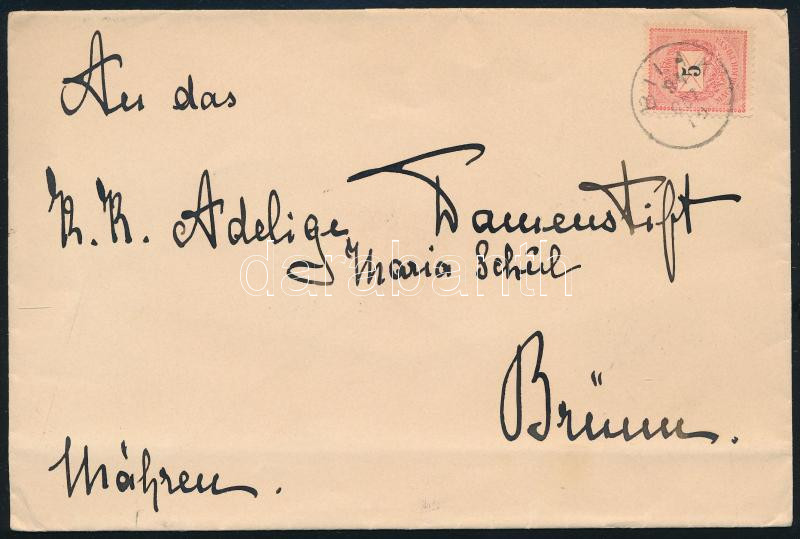 An das
K. K. Adelige Damenstift
Maria Schul
Brünn.
Mähren.
5
darabanth